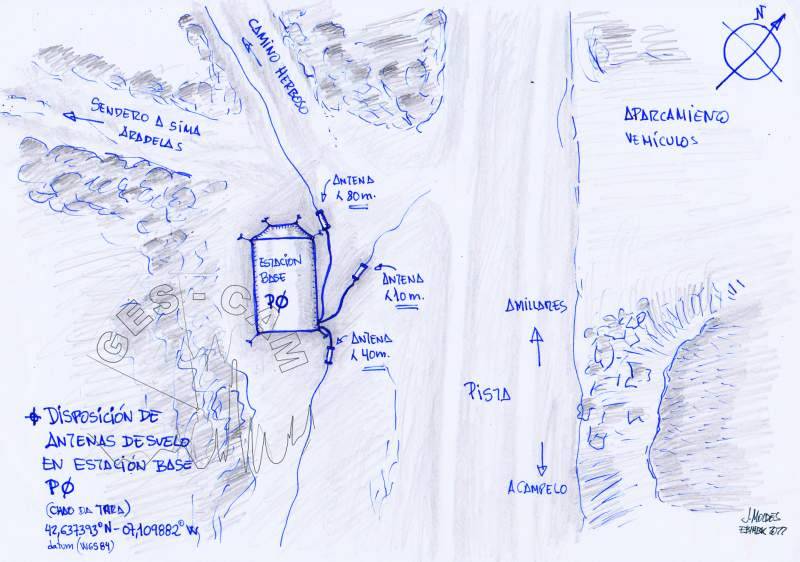 N
CAMINO HERBOSO
SENDERO A SIMA
ARADELAS
APARCAMIENTO
VEHÍCULOS
ANTENA
λ 80 m.
ESTACIÓN
BASE
PØ
ANTENA
λ 10 m.
ANTENA
λ 40 m.
GES-CAM
A MILLARES
PISTA
A CAMPELO
DISPOSICIÓN DE
ANTENAS DE SUELO
EN ESTACIÓN BASE
PØ
(CHAO DA TARA)
42,637393°N - 07,109882°W
datum (WGS84)